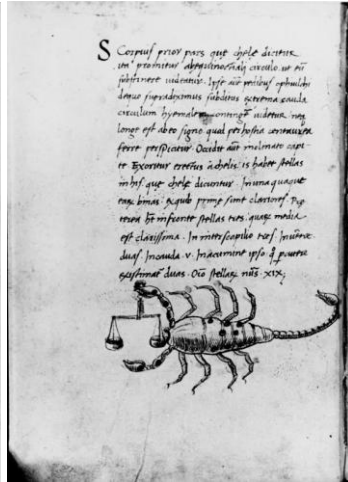 Scorpius prior pars que chele dicitur
ita proximus circulo ut eum
subtinere videatur. Ipse aut pedibus ophiulchi
deque supradiximus subditus extrema cauda
circulum hyemale contingere videtur. neq
longe est ab eo signo qual per hostia centaurea
ferre perspicitur. Occidit aut inclinato capi
te Exoritur erectus achelis is habet stellas
in his que chele dicuntur. In una quaque
earum binas. e quib prime sunt clariores. Pre
terea ht in fronte stellas tres. quarum media
est clarissima. In interscapilio tres. In ventre
duas. In cauda .v. In acumine ipso. q
existimat duas. Oio stellarum nūs .xix;